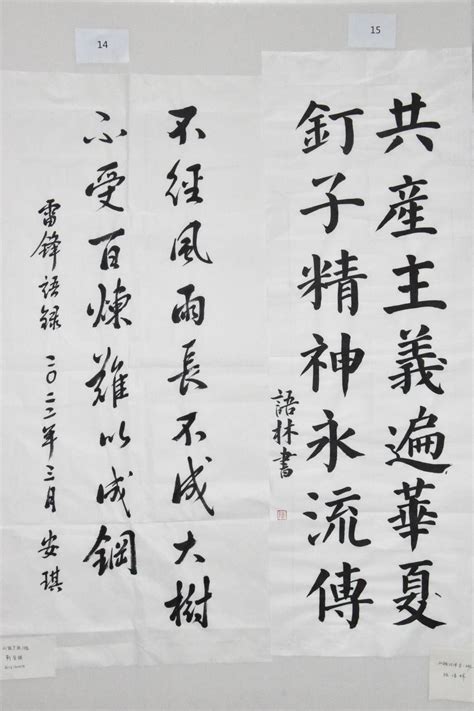 15
共産主義遍華夏
釘子精神永流傳
語林書
14
不經風雨長不成大樹
不受百煉難以成鋼
雷鋒語錄 二〇二二年三月 安琪